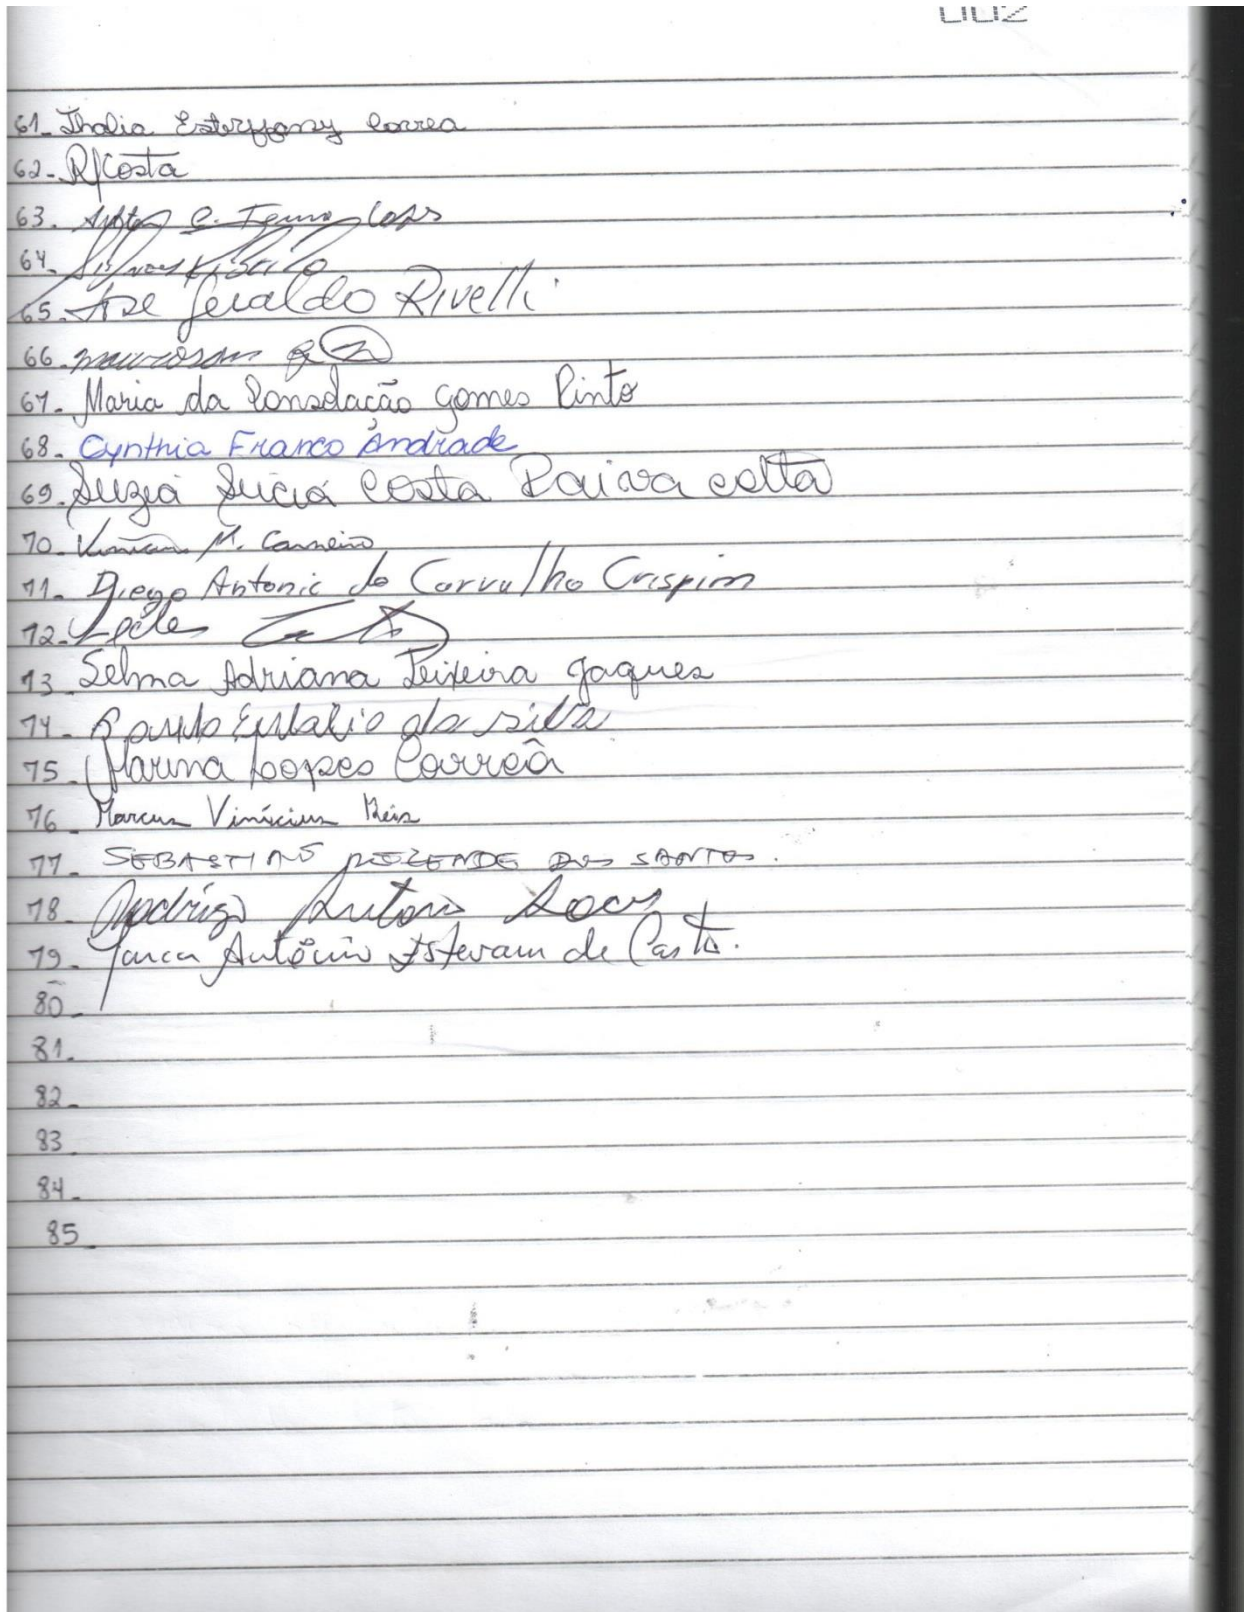 002
61- Thalia Esterffany Correa
62- R/Costa
63. C. Lopes
64-
65- José Geraldo Rivelli
66-
67- Maria da Consolação Gomes Pinto
68- Cynthia Franco Andrade
69- Suzia Lúcia Costa Paiva cotta
70- Vinícius M. Carneiro
71- Diego Antonio de Carvalho Crispim
72-
73- Selma Adriana Teixeira Jaques
74- Paulo Eulalio da silva
75- Marina Lopes Corrêa
76- Marcus Vinícius Reis
77- SEBASTIÃO REZENDE DOS SANTOS.
78- Rodrigo Antonio
79- Antônio Estevam de Castro.
80-
81-
82-
83-
84-
85-